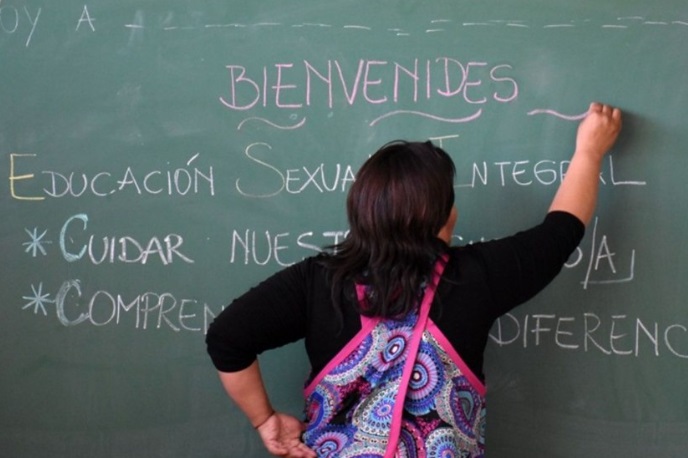 OY A
BIENVENIDES
EDUCACIÓN SEXUA INTEGRAL
*CUIDAR NUEST O/A
*COMPREN DIFERENC